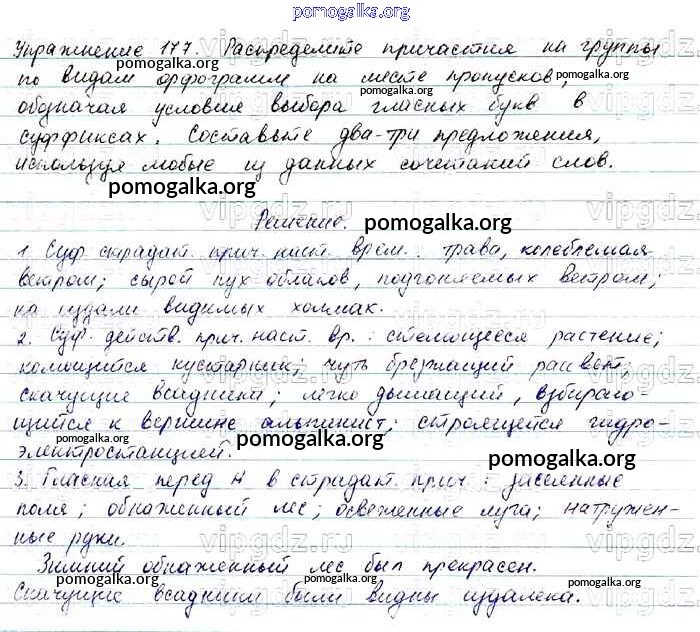 pomogalka.org
Упражнение 177. Распределите причастия на группы
по видам орфограмм на месте пропусков,
обозначая условия выбора гласных букв в
суффиксах. Составьте два-три предложения,
используя любые из данных сочетаний слов.
pomogalka.org
Решение. pomogalka.org
1. Суф. страдат. прич. наст. врем.: трава, колеблемая
ветром; сырой пух облаков, подгоняемых ветром;
на издали видимых холмах.
2. Суф. действ. прич. наст. вр.: стелющееся растение;
колющийся кустарник; чуть брезжащий рассвет;
скачущие всадники; легко дышащий, взбираю-
щийся к вершине альпинист; строящейся гидро-
электростанцией.
pomogalka.org
3. Гласная перед Н в страдат. прич.: засеянные
поля; обнаженный лес; освеженные луга; натружен-
ные руки.
Зимний обнаженный лес был прекрасен.
Скачущие всадники были видны издалека.